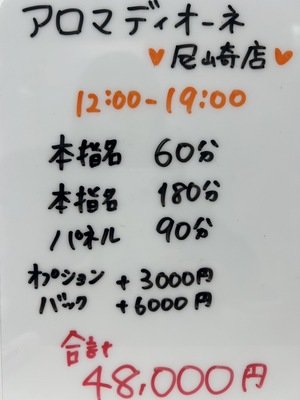 アロマディオーネ
♥尼崎店♥
12:00-19:00
本指名 60分
本指名 180分
パネル 90分
オプション +3000円
バック +6000円
合計
48,000円